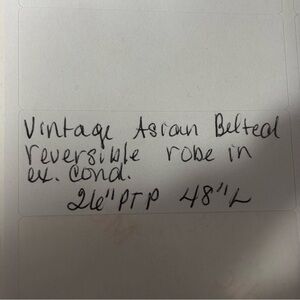 Vintage Asian Belted
reversible robe in
ex. cond.
26" PTP 48" L